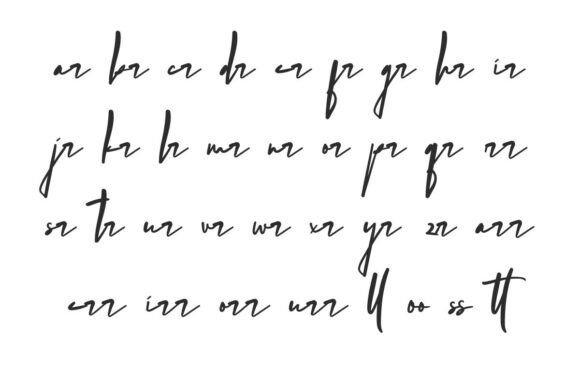 ar br cr dr er fr gr hr ir
jr kr lr mr nr or pr qr rr
sr tr ur vr wr xr yr zr arr
err irr orr urr ll oo ss tt